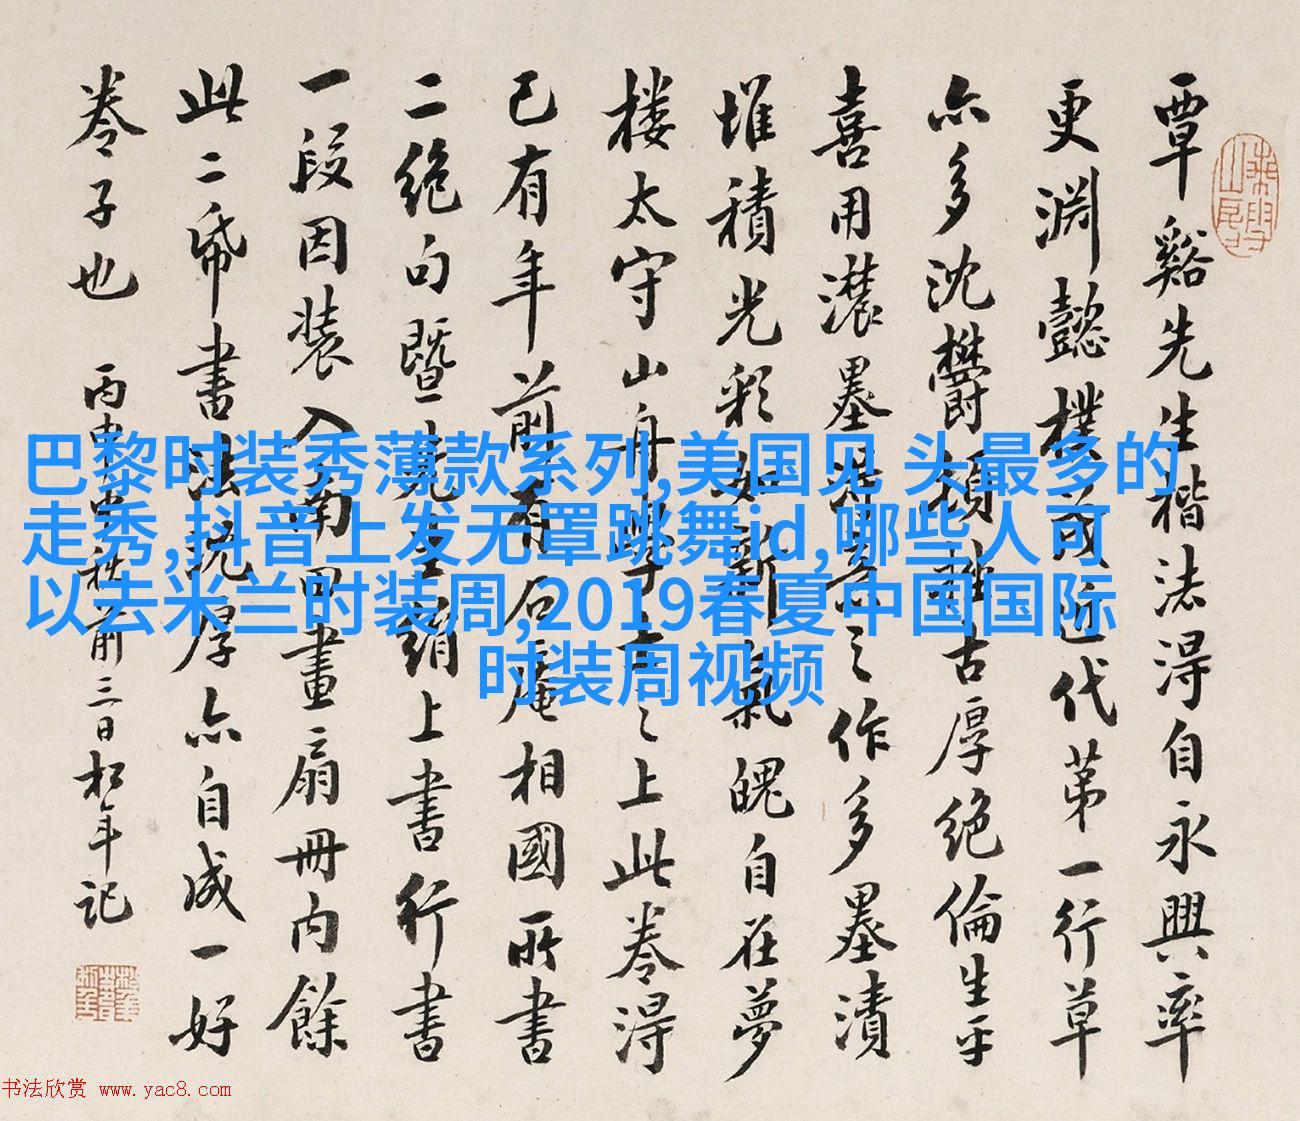 覃谿先生楷法得自永興率
更淵懿樸茂近代第一行草
亦多沈欝頓挫古厚絶倫生平
喜用濃墨之作多墨漬
堆積光彩如新氣魄自在夢
樓太守山舟學士之上此卷得
已有年前有石庵相國所書
二絶句暨絹上書行書
一段因装入南田畫扇冊内餘
此二帋書法既厚亦自成一好
卷子也 丙申中秋前三日松年記
巴黎时装秀薄款系列,美国见 头最多的
走秀,抖音上发无罩跳舞id,哪些人可
以去米兰时装周,2019春夏中国国际
时装周视频
书法欣赏 www.yac8.com